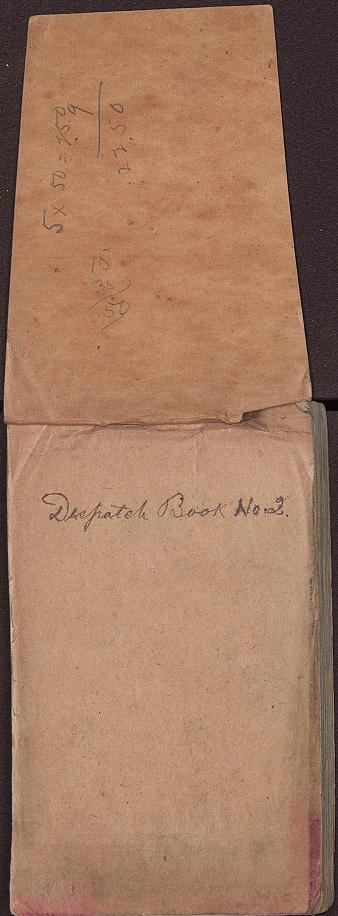 5 x 50 = 250
9
2250
15
35
50
Despatch Book No. 2.